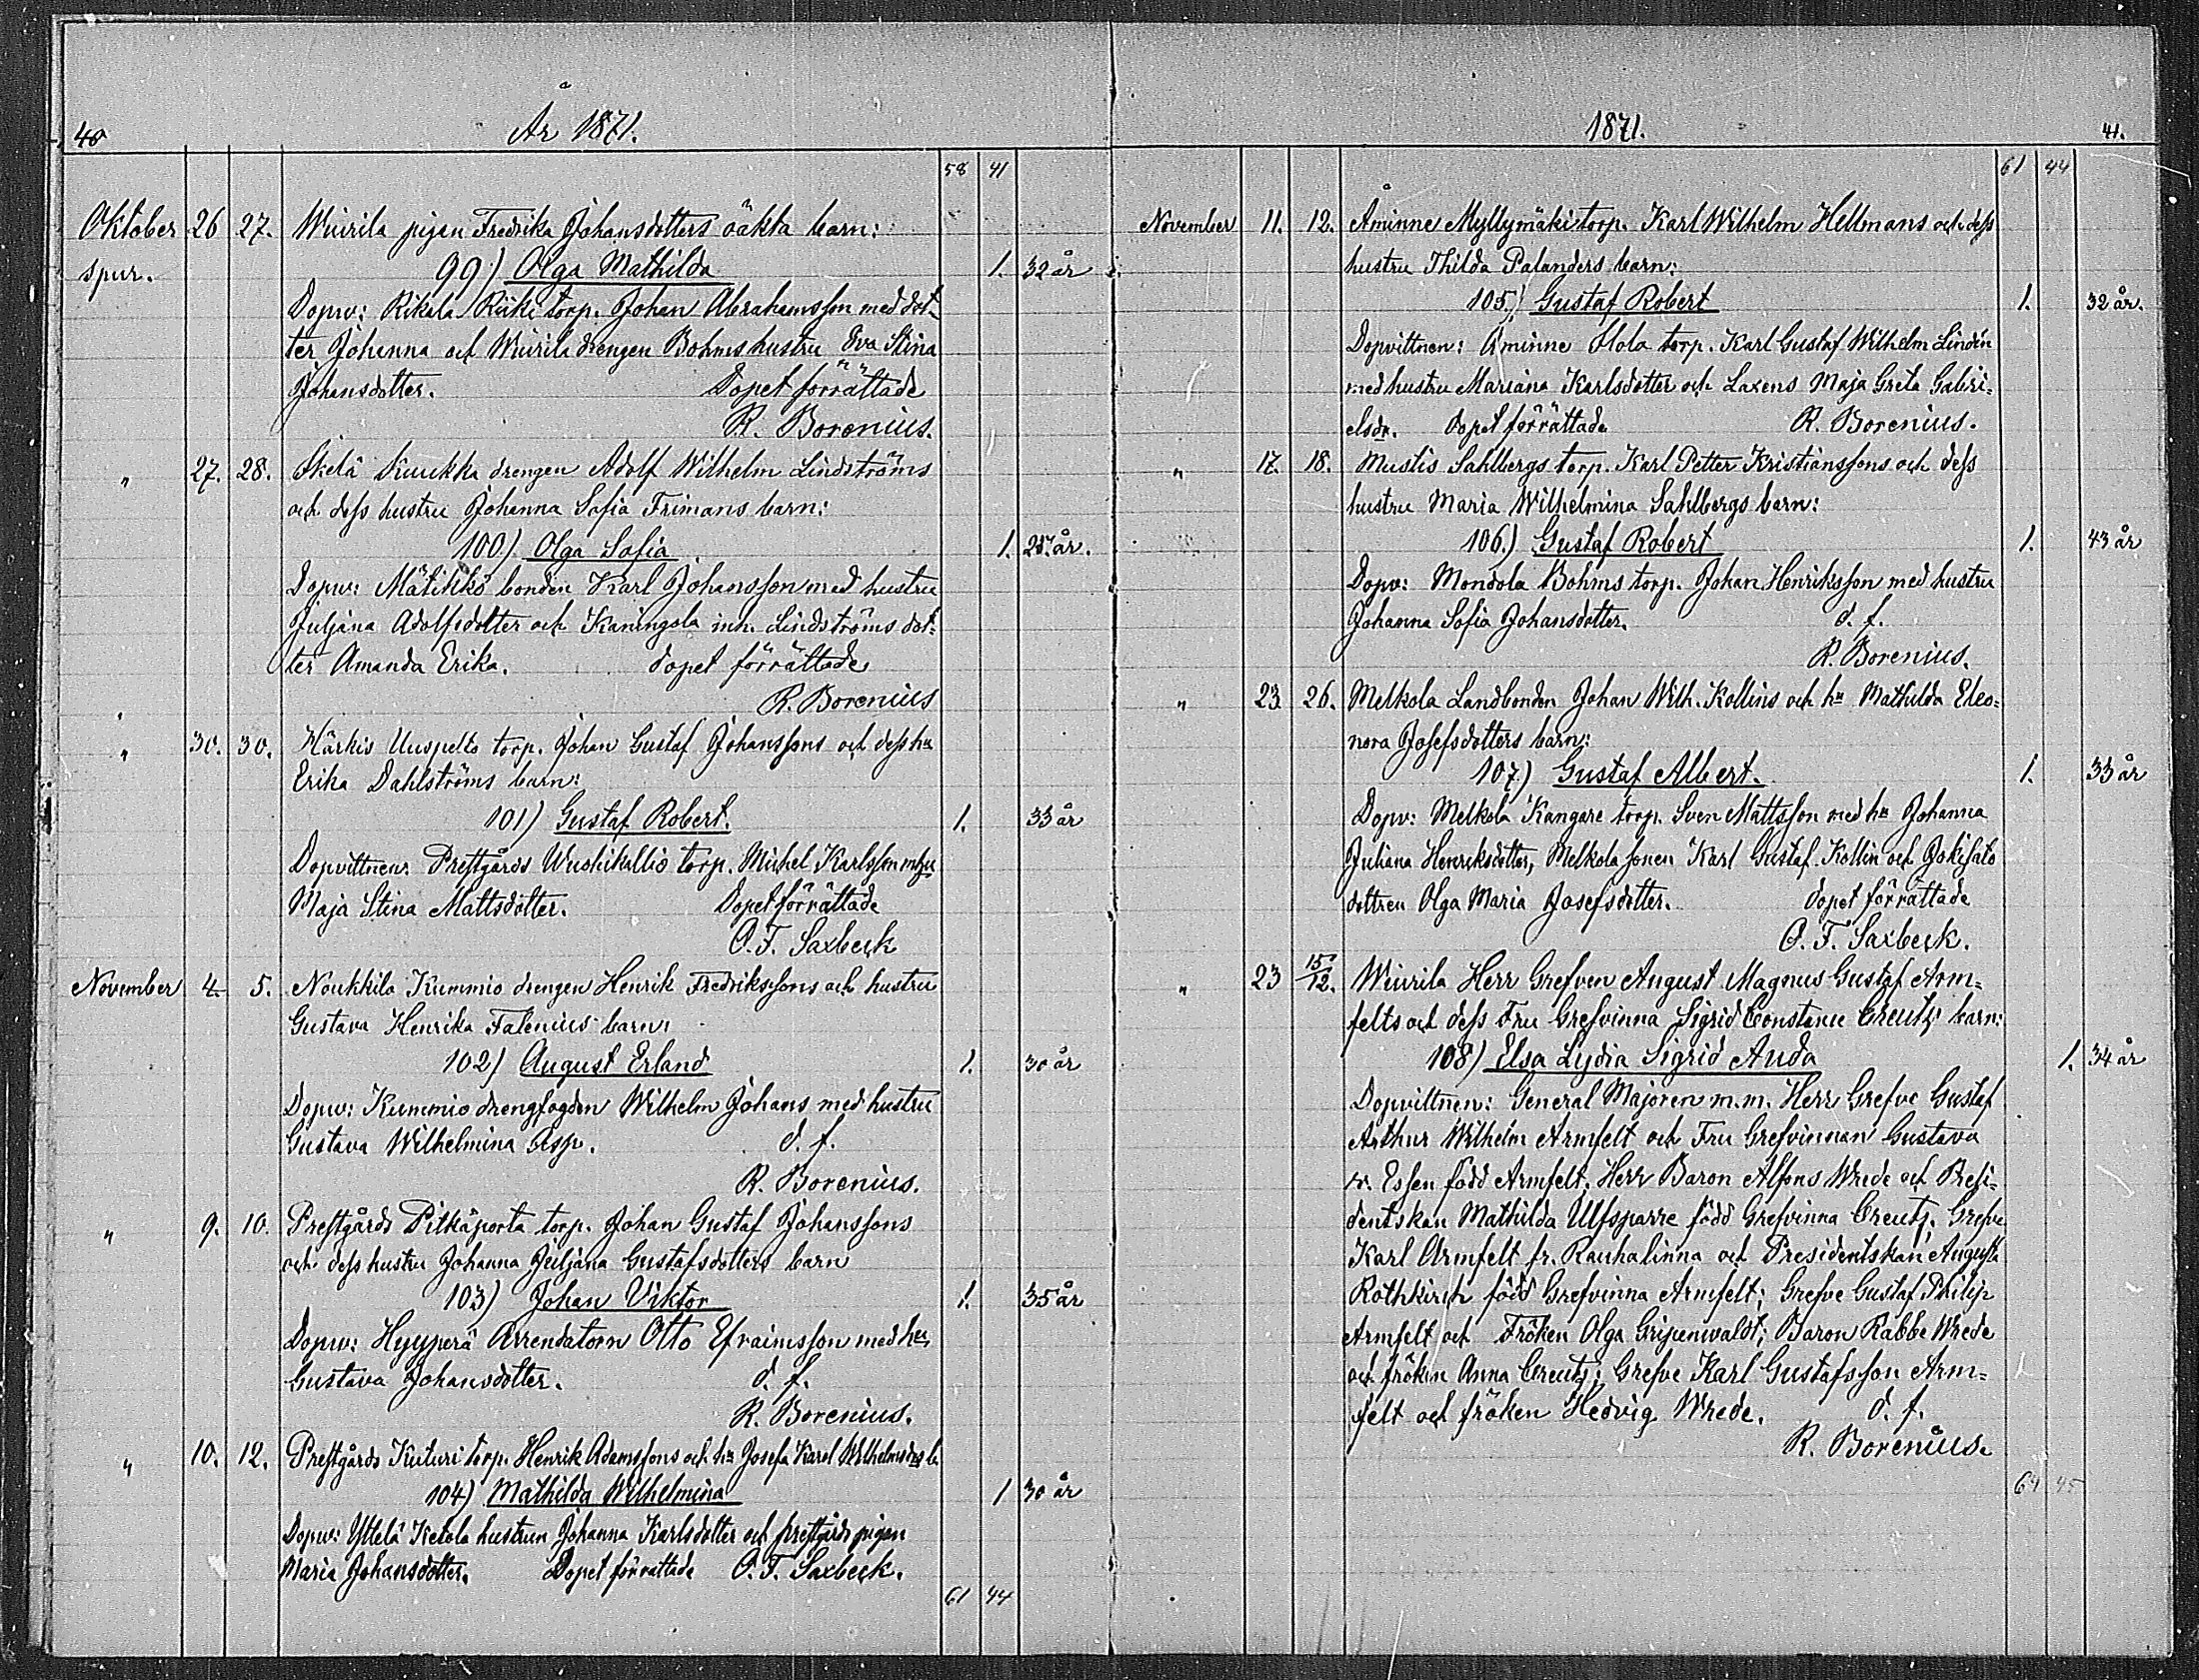 40
År 1871.
58 41
Oktober 26 27. Wiurila pigan Fredrika Johansdotters oäkta barn:
spur. 99) Olga Mathilda 1. 32 år
Dopv: Rikala Riiki torp. Johan Abrahamsson med dot-
ter Johanna och Wiurila drengen Bohms hustru Eva Stina
Johansdotter. Dopet förrättade
R. Borenius.
" 27. 28. Isketä Kuukka drengen Adolf Wilhelm Lindströms
och dess hustru Johanna Sofia Frimans barn:
100) Olga Sofia 1. år.
Dopv: Mätikkö bonden Karl Johansson med hustru
Juljana Adolfsdotter och Kaningola inh. Lindströms dot-
ter Amanda Erika. dopet förrättade
R. Borenius
" 30. 30. Härkis Uuspelto torp. Johan Gustaf Johanssons och dess hu
Erika Dahlströms barn:
101) Gustaf Robert. 1. 33 år
Dopvittnen: Prestgårds Wuohikallio torp. Mickel Karlsson m hu
Maja Stina Mattsdotter. Dopet förrättade
O. F. Saxbeck
November 4. 5. Noukkila Kummio drengen Henrik Fredrikssons och hustru
Gustava Henrika Falenius barn:
102) August Erland 1. 30 år
Dopv: Kummio drengfogden Wilhelm Johans med hustru
Gustava Wilhelmina Asp. d. f.
R. Borenius.
" 9. 10. Prestgårds Pitkäporta torp. Johan Gustaf Johanssons
och dess hustru Johanna Juljana Gustafsdotters barn
103) Johan Viktor 1. 35 år
Dopv: Hyyperä Arrendatorn Otto Efraimsson med hu
Gustava Johansdotter. d. f.
R. Borenius.
" 10. 12. Prestgårds Kuturi torp. Henrik Adamssons och hu Josefa Karol Wilhelmsdrs b.
104) Mathilda Wilhelmina 1 30 år
Dopv: Yltelä Ketola hustrun Johanna Karlsdotter och prestgårds pigan
Maria Johansdotter. Dopet förrättade O. F. Saxbeck.
61 44
1871.
41.
61 44
November 11. 12. Åminne Myllymäki torp. Karl Wilhelm Hellmans och dess
hustru Thilda Palanders barn:
105.) Gustaf Robert 1. 32 år.
Dopvittnen: Åminne Hola torp. Karl Gustaf Wilhelm Lindén
med hustru Mariana Karlsdotter och Laxens Maja Greta Gabri-
elsdr. Dopet förrättade R. Borenius.
" 17. 18. Mustis Sahlbergs torp. Karl Petter Kristianssons och dess
hustru Maria Wilhelmina Sahlbergs barn:
106.) Gustaf Robert 1. 43 år
Dopv: Mondola Bohms torp. Johan Henriksson med hustru
Johanna Sofia Johansdotter. d. f.
R. Borenius.
" 23 26. Melkola Landbonden Johan Wilh. Kollins och hu Mathilda Eleo-
nora Josefsdotters barn:
107) Gustaf Albert. 1. 33 år
Dopv: Melkola Kangare torp. Sven Mattsson med hu Johanna
Juliana Henriksdotter, Melkola sonen Karl Gustaf Kollin och Jokisato
dottren Olga Maria Josefsdotter. dopet förrättade
O. F. Saxbeck.
" 23 15/12. Wiurila Herr Grefven August Magnus Gustaf Arm-
felts och dess Fru Grefvinna Sigrid Constance Creutz barn:
108) Elsa Lydia Sigrid Anda 1. 34 år
Dopvittnen: General Majoren m.m. Herr Grefve Gustaf
Arthur Wilhelm Armfelt och Fru Grefvinnan Gustava
v. Essen född Armfelt, Herr Baron Alfons Wrede och Presi-
dentskan Mathilda Ulfsparre född Grefvinna Creutz, Grefve
Karl Armfelt fr. Rauhalinna och Presidentskan Augusta
Rothkirch född Grefvinna Armfelt; Grefve Gustaf Philip
Armfelt och Fröken Olga Gripenwaldt; Baron Rabbe Wrede
och fröken Anna Creutz; Grefve Karl Gustafsson Arm-
felt och fröken Hedvig Wrede. d. f.
R. Borenius.
64 45